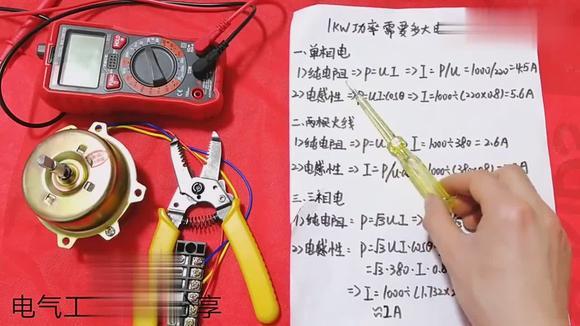 1kW功率需要多大电
一.单相电
1)纯电阻⇒P=UI⇒I=P/U=1000/220=4.5A
2)电感性⇒P=UIcosθ⇒I=1000÷(220×0.8)=5.6A
二.两根火线
1)纯电阻⇒P=U I=1000÷380=2.6A
2)电感性⇒I=P/U 1000÷(380×0.8)
三.三相电
1)纯电阻=P=√3UI⇒I
2)电感性=P=√3UI·cosθ
=√3·380·I·0.8
⇒I=1000÷(1.732×
≈2A
电气工 享